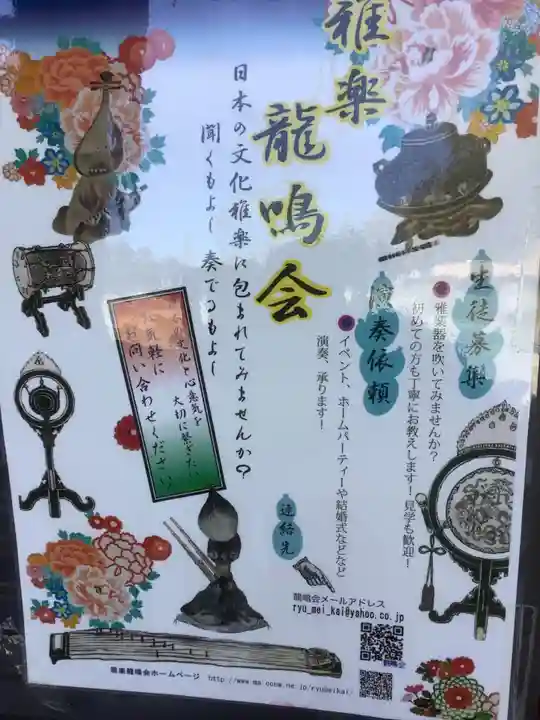 雅楽
龍鳴会
日本の文化雅楽に包まれてみませんか?
聞くもよし奏でるもよし
生徒募集
雅楽器を吹いてみませんか?
初めての方も丁寧にお教えします!見学も歓迎!
演奏依頼
イベント、ホームパーティーや結婚式などなど
演奏、承ります!
文化と心意気を
大切に繋ぎた
気軽に
お問い合わせください
連絡先
龍鳴会メールアドレス
ryu_mei_kai@yahoo.co.jp
雅楽龍鳴会ホームページ http://www.ma.ccnw.ne.jp/ryumeikai/